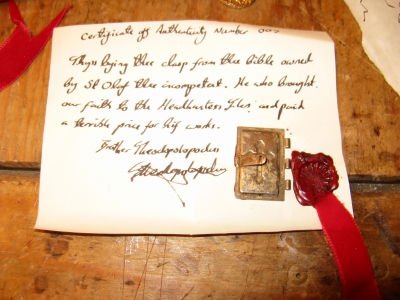 Certificate of Authenticity Number 007
Thys bying thee clasp from thee bible owned
by St Olaf thee incompetent. He who brought
our faith to the Headhunters Isles and paid
a terrible price for hif works.
Brother Theodopolopodus
Theodopolopodus